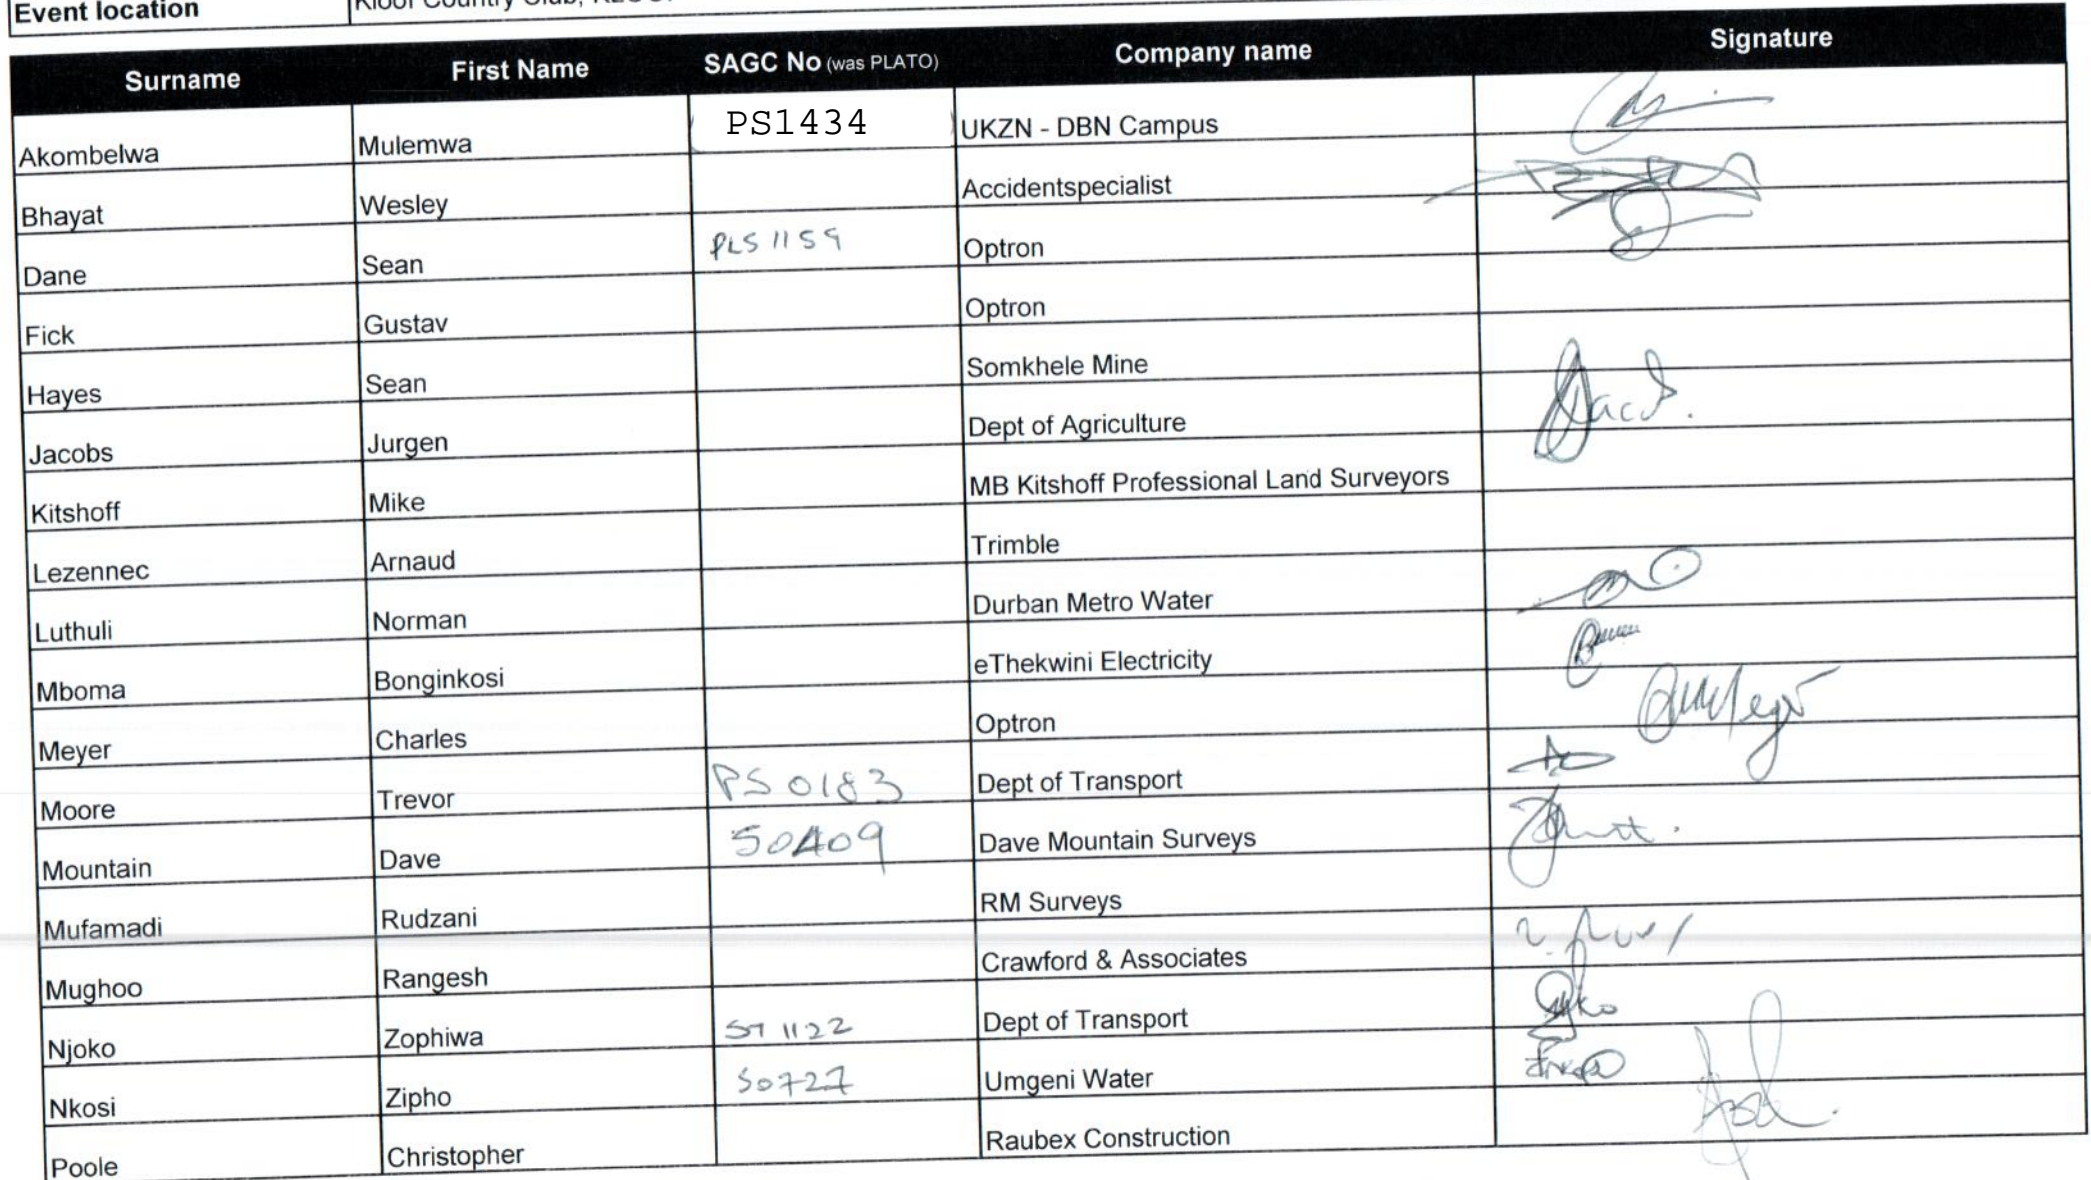 Event location Kloof Country Club,
Surname First Name SAGC No (was PLATO) Company name Signature
Akombelwa Mulemwa PS1434 UKZN - DBN Campus
Bhayat Wesley Accidentspecialist
Dane Sean PLS 1159 Optron
Fick Gustav Optron
Hayes Sean Somkhele Mine
Jacobs Jurgen Dept of Agriculture
Kitshoff Mike MB Kitshoff Professional Land Surveyors
Lezennec Arnaud Trimble
Luthuli Norman Durban Metro Water
Mboma Bonginkosi eThekwini Electricity
Meyer Charles Optron
Moore Trevor PS 0183 Dept of Transport
Mountain Dave S0409 Dave Mountain Surveys
Mufamadi Rudzani RM Surveys
Mughoo Rangesh Crawford & Associates
Njoko Zophiwa ST 1122 Dept of Transport
Nkosi Zipho S0727 Umgeni Water
Poole Christopher Raubex Construction